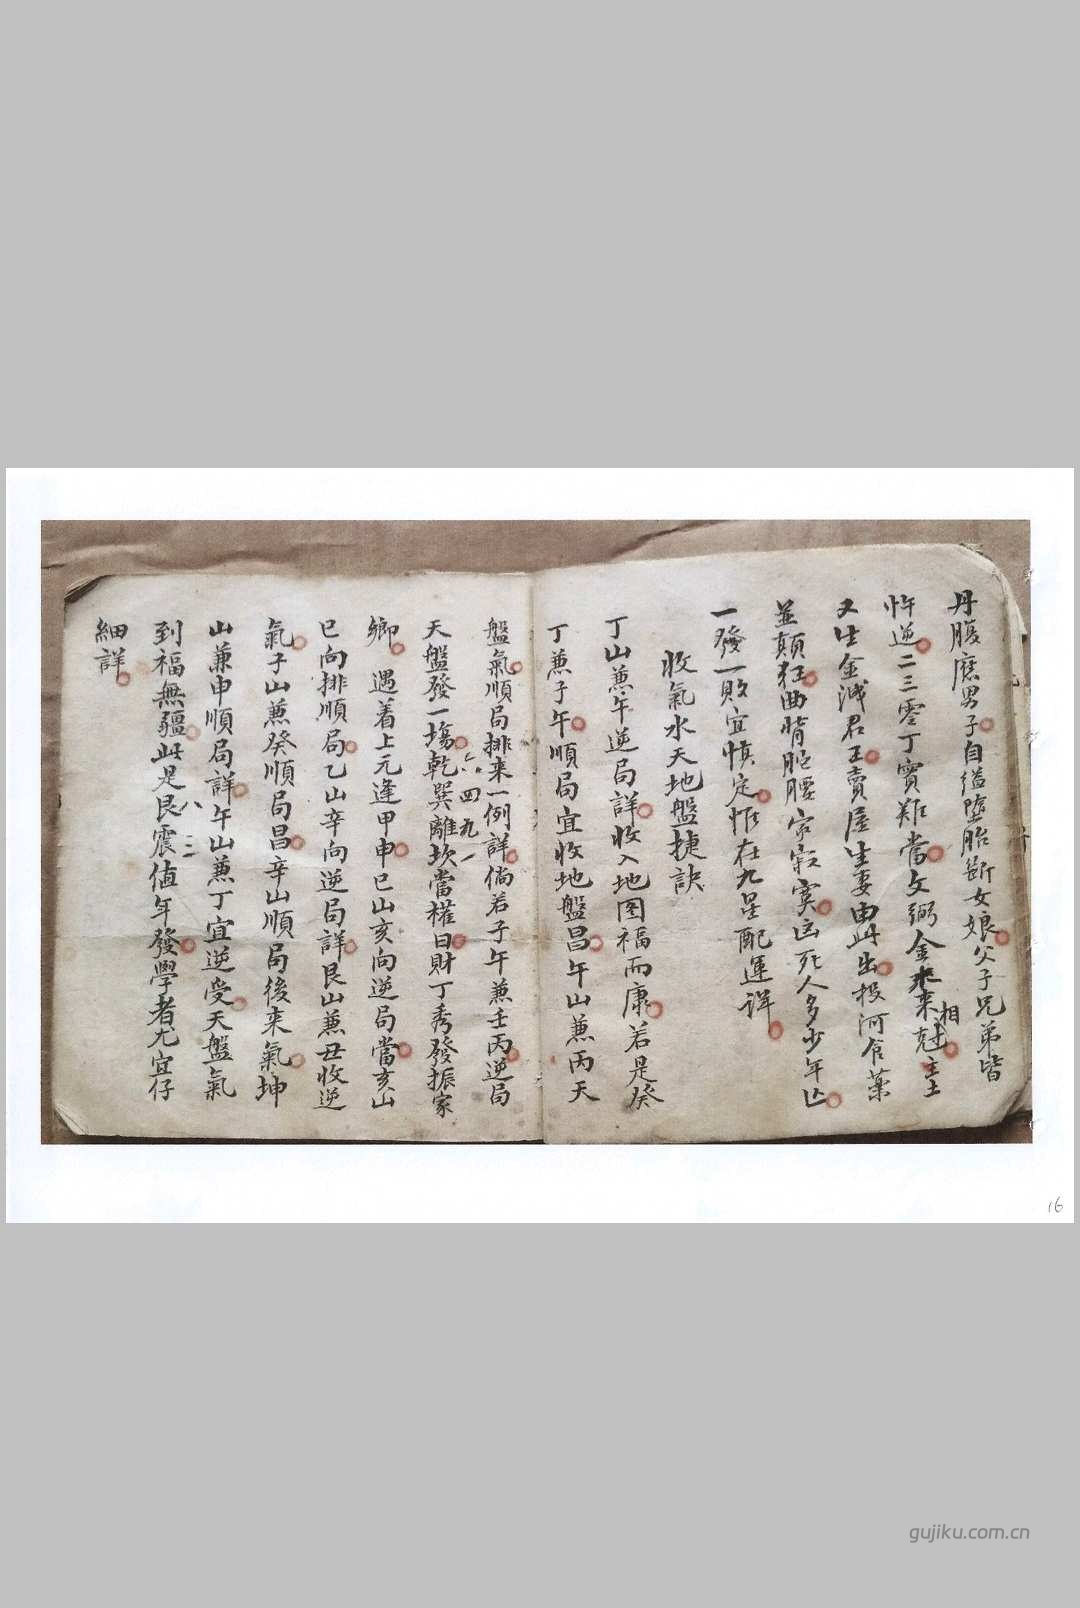 丹腹㾮男子自縊墮胎斷女娘父子兄弟皆
忤逆二三零丁實難當文弼金來相尅主
又生金洩君王賣屋生妻由此出投河食藥
並顛狂曲背駝腰寂寞凶死人多少年亡
一發一敗宜慎定惟在九星配運詳
收氣水天地盤捷訣
丁山兼午逆局詳收入地图福而康若是癸
丁兼子午順局宜收地盤昌午山兼丙天
盤氣順局排來一例詳倘若子午兼壬丙逆局
天盤發一塲乾巽離坎當權日財丁秀發振家
六四九一
鄉 遇着上元逢甲申巳山亥向逆局當亥山
巳向排順局乙山辛向逆局詳艮山兼丑收逆
氣子山兼癸順局昌辛山順局後来氣坤
山兼申順局詳午山兼丁宜逆受天盤氣
到福無疆此是艮震值年發學者尤宜仔
八三
細詳
16
gujiku.com.cn